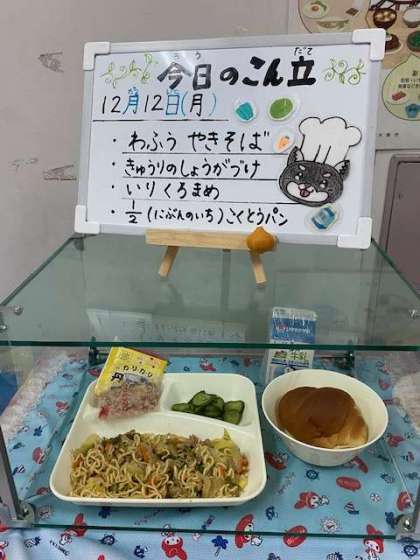 今日のこん立
だて
12月12日(月)
・わふう やきそば
・きゅうりのしょうがづけ
・いりくろまめ
・1/2(にぶんのいち)こくとうパン
牛乳